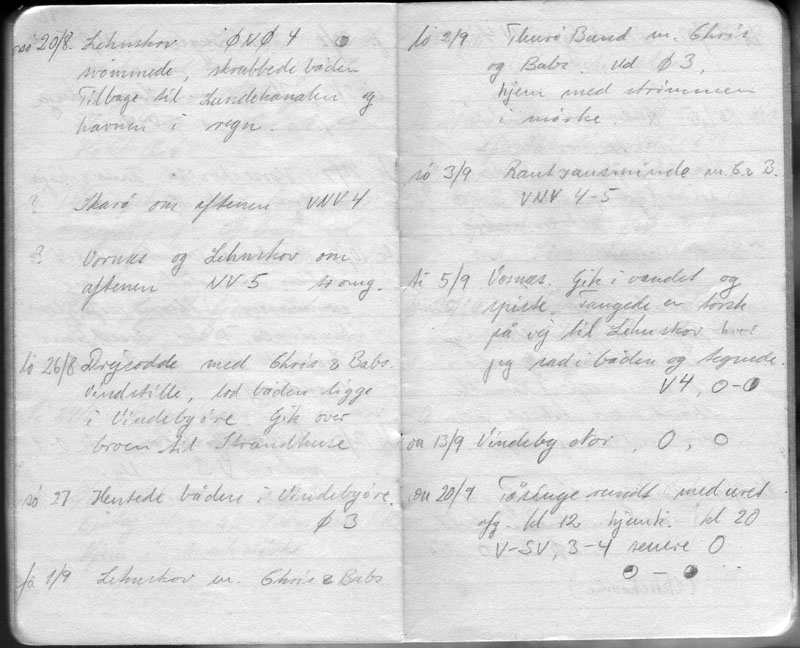 sø 20/8. Lehnskov ØNØ 4
svømmede, skrabbede båden
Tilbage til Lundekanalen og
havnen i regn.
? Skarø om aftenen VNV 4
? Vornæs og Lehnskov om
aftenen NV 5 omg.
lø 26/8 Drejsodde med Chris & Babs.
Vindstille, lod båden ligge
i Vindebyøre. Gik over
broen til Strandhuse
sø 27 Hentede båden i Vindebyøre.
Ø 3
fr 1/9 Lehnskov m. Chris & Babs
lø 2/9 Thurø Bund m. Chris
og Babs. Ud Ø 3,
hjem med strømmen
i mørke.
sø 3/9 Rantzausminde m. C & B.
VNV 4-5
ti 5/9 Vornæs. Gik i vandet og
spiste. Fangede en torsk
på vej til Lehnskov hvor
jeg sad i båden og tegnede.
V4, O-
on 13/9 Vindeby nor, O, O
on 20/9 Tåsinge rundt med uret
afg. kl 12 hjemk. kl 20
V-SV, 3-4 senere O